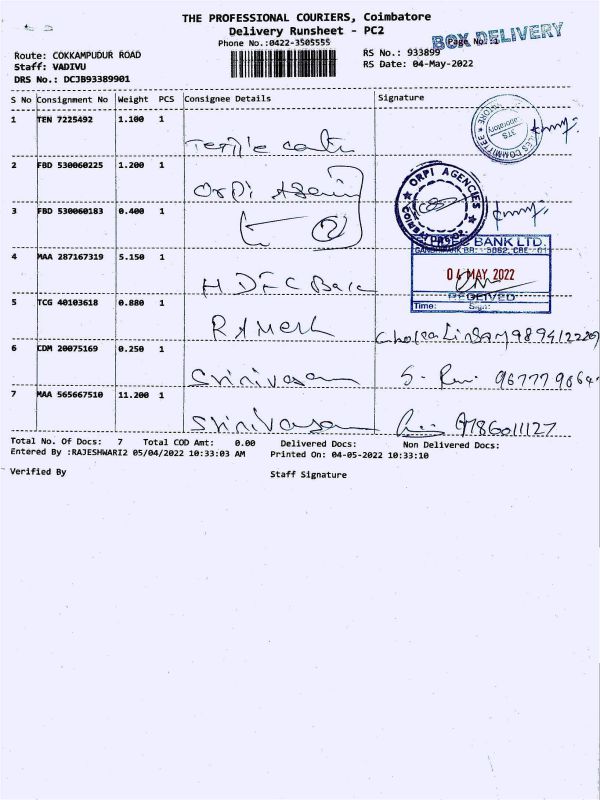 THE PROFESSIONAL COURIERS, Coimbatore
Delivery Runsheet - PC2
Phone No.:0422-3505555
BOX DELIVERY
Page No.:1
Route: COKKAMPUDUR ROAD
RS No.: 933899
Staff: VADIVU
RS Date: 04-May-2022
DRS No.: DCJB93389901
S No Consignment No Weight PCS Consignee Details Signature
1 TEN 7225492 1.100 1
2 FBD 530060225 1.200 1
ORPI AGENCIES
3 FBD 530060183 0.400 1
2
BANK LTD.
4 MAA 287167319 5.150 1
HDFC Bank
04 MAY 2022
RECEIVED
Time: Sign:
5 TCG 40103618 0.880 1
RAMESH
6 CDM 20075169 0.250 1
Srinivasan
7 MAA 565667510 11.200 1
Srinivasan 9786011127
Total No. Of Docs: 7 Total COD Amt: 0.00 Delivered Docs: Non Delivered Docs:
Entered By :RAJESHWARI2 05/04/2022 10:33:03 AM Printed On: 04-05-2022 10:33:10
Verified By Staff Signature